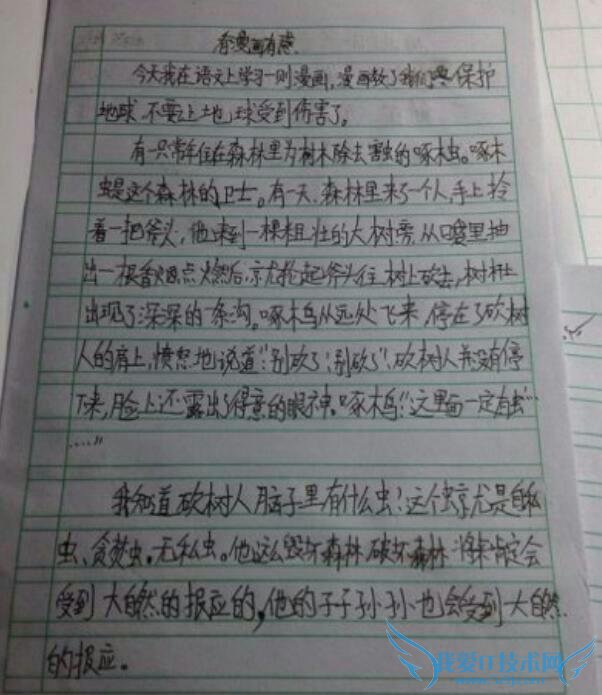 看漫画有感
今天我在语文上学习一则漫画,漫画教了我们要保护
地球,不要让地球受到伤害了。
有一只常年住在森林里为树木除去害虫的啄木虫。啄木
虫是这个森林的卫士。有一天,森林里来了一个人,手上拎
着一把斧头,他来到一棵粗壮的大树旁,从口袋里抽
出一根香烟点燃后,就抡起斧头往树上砍去,树干上
出现了深深的一条沟。啄木鸟从远处飞来,停在了砍树
人的肩上,愤怒地说道:“别砍了!别砍了”,砍树人并没有停
下来,脸上还露出了得意的眼神。啄木鸟:“这里面一定有虫…
…”
我知道砍树人脑子里有什么虫!这个虫就是自私
虫、贪婪虫。无私虫。他这么毁坏森林,破坏森林,将来肯定会
受到大自然的报应的,他的子子孙孙也会受到大自然
的报应。
我爱IT技术网